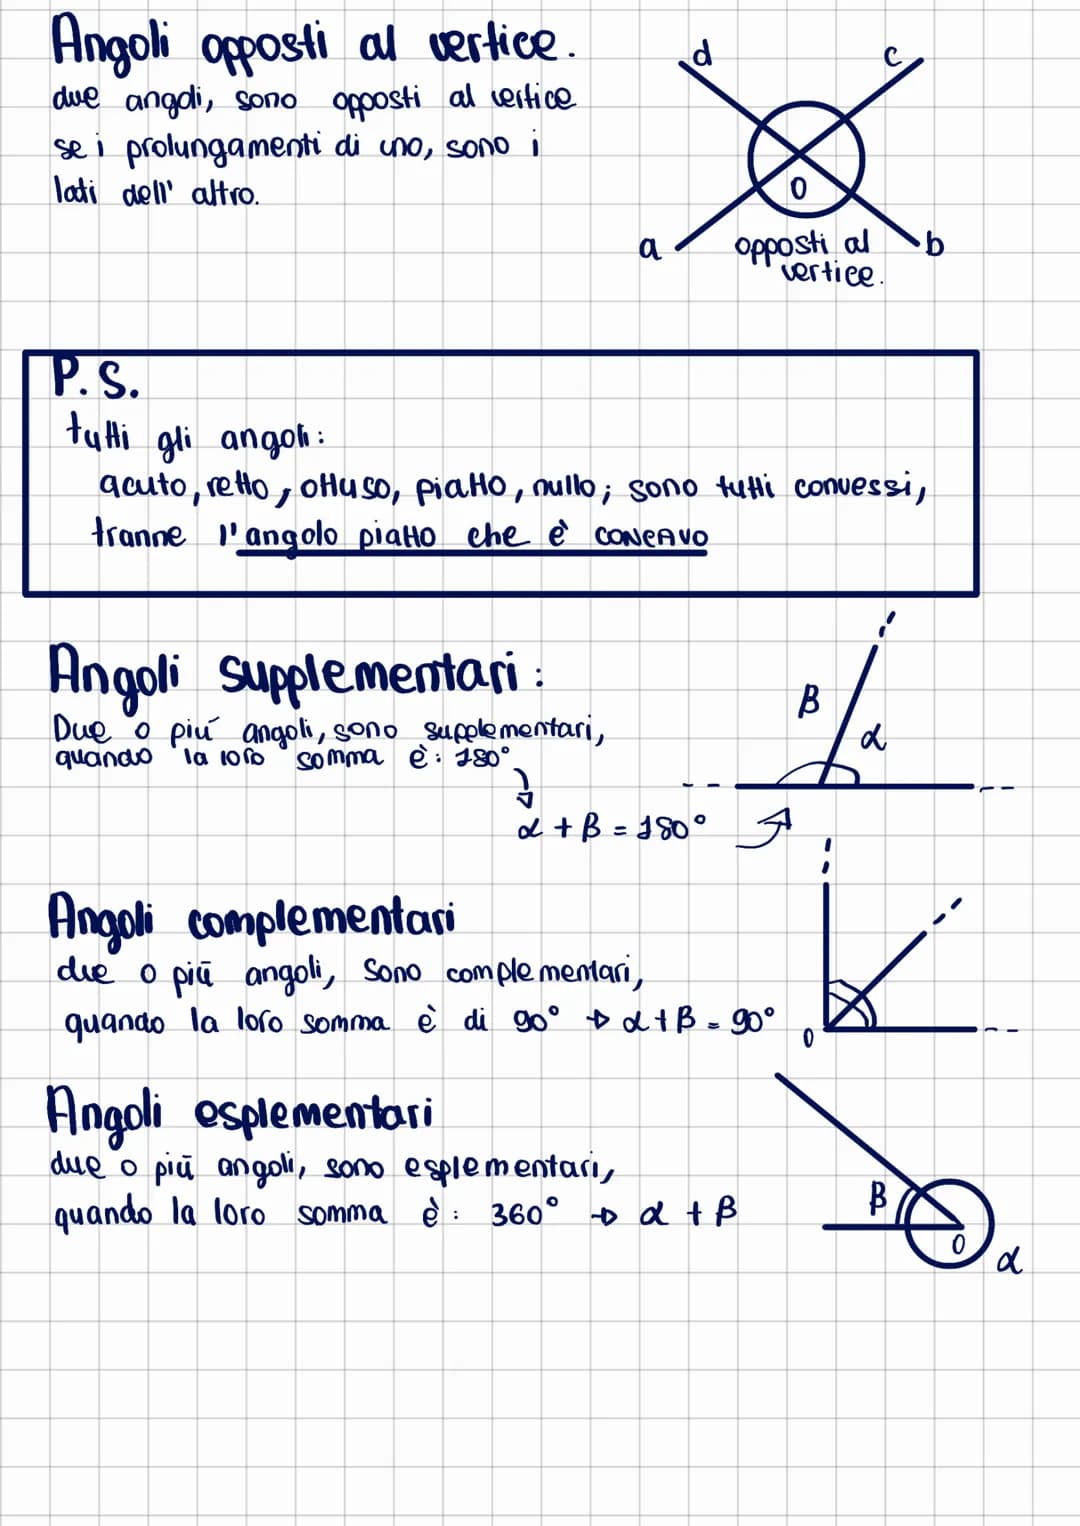 Angoli opposti al vertice.
due angoli, sono opposti al vertice
se i prolungamenti di uno, sono i
lati dell' altro.
d
c
O
a
b
opposti al
vertice.
P.S.
tutti gli angoli:
acuto, retto, ottuso, piatto, nullo; sono tutti convessi,
tranne l'angolo piatto che è CONCAVO
Angoli supplementari:
Due o piú angoli, sono supplementari,
quando la loro somma è: 180°
α + β = 180°
β
α
Angoli complementari
due o più angoli, sono complementari,
quando la loro somma è di 90° → α + β = 90°
O
Angoli esplementari
due o più angoli, sono esplementari,
quando la loro somma è: 360° → α + β
β
O
α